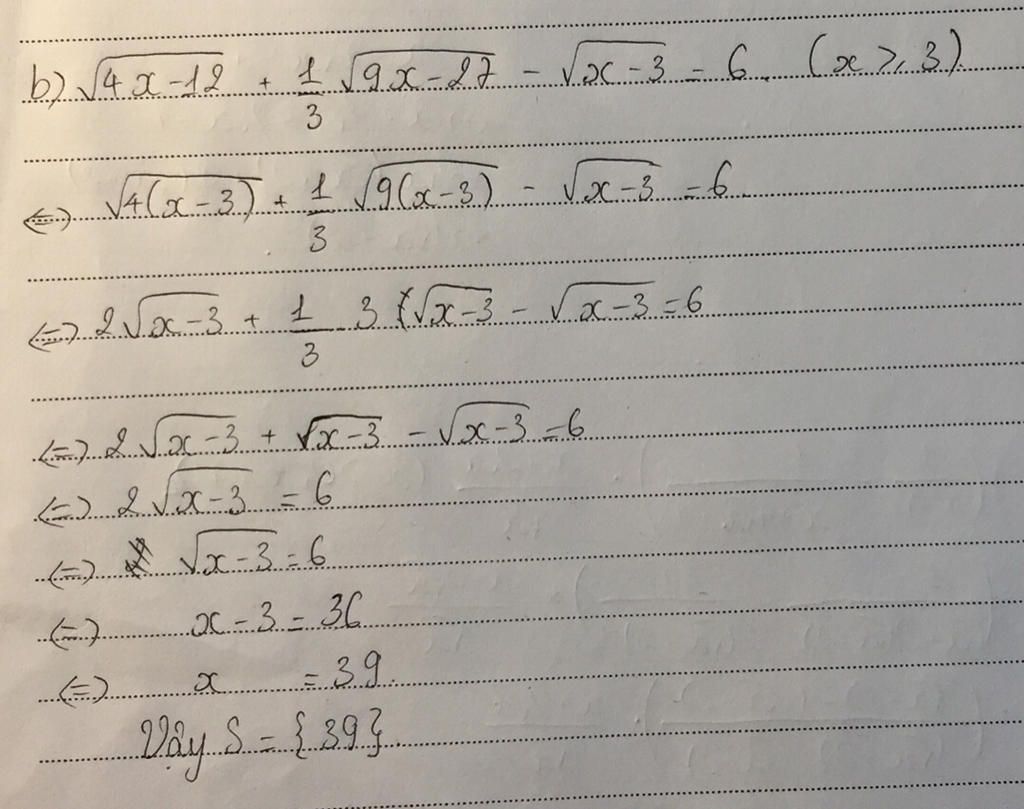 b) √(4x-12) + 1/3 √(9x-27) - √(x-3) = 6. (x ≥ 3)
<=> √(4(x-3)) + 1/3 √(9(x-3)) - √(x-3) = 6
<=> 2√(x-3) + 1/3 . 3 √(x-3) - √(x-3) = 6
<=> 2√(x-3) + √(x-3) - √(x-3) = 6
<=> 2√(x-3) = 6
<=> √(x-3) = 6
<=> x - 3 = 36
<=> x = 39.
Vậy S = {39}.